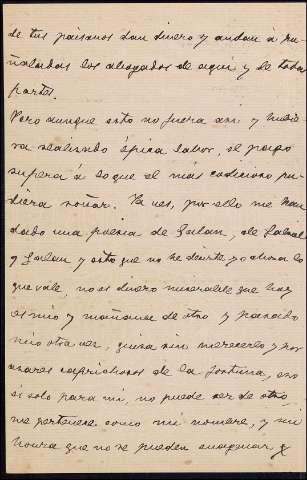 de tus paisanos dan dinero y andan á pu-
ñaladas los abogados de aquí y de todas
partes.
Pero aunque esto no fuera así y hubie
ra realizado épica labor, el pago
supera á lo que el más codicioso pu-
diera soñar. Ya ves, por ello me han
dado una poesia de Galan, de Gabriel
y Galan y esto que no se discute y aduna lo
que vale, no es dinero miserable que hoy
es mio y mañana de otro y pasado
mio otra vez, quiza sin merecerlo y por
azares caprichosos de la fortuna, eso
es solo para mi, no puede ser de otro
me pertenece como mi nombre, y mi
honra que no se pueden enagenar y